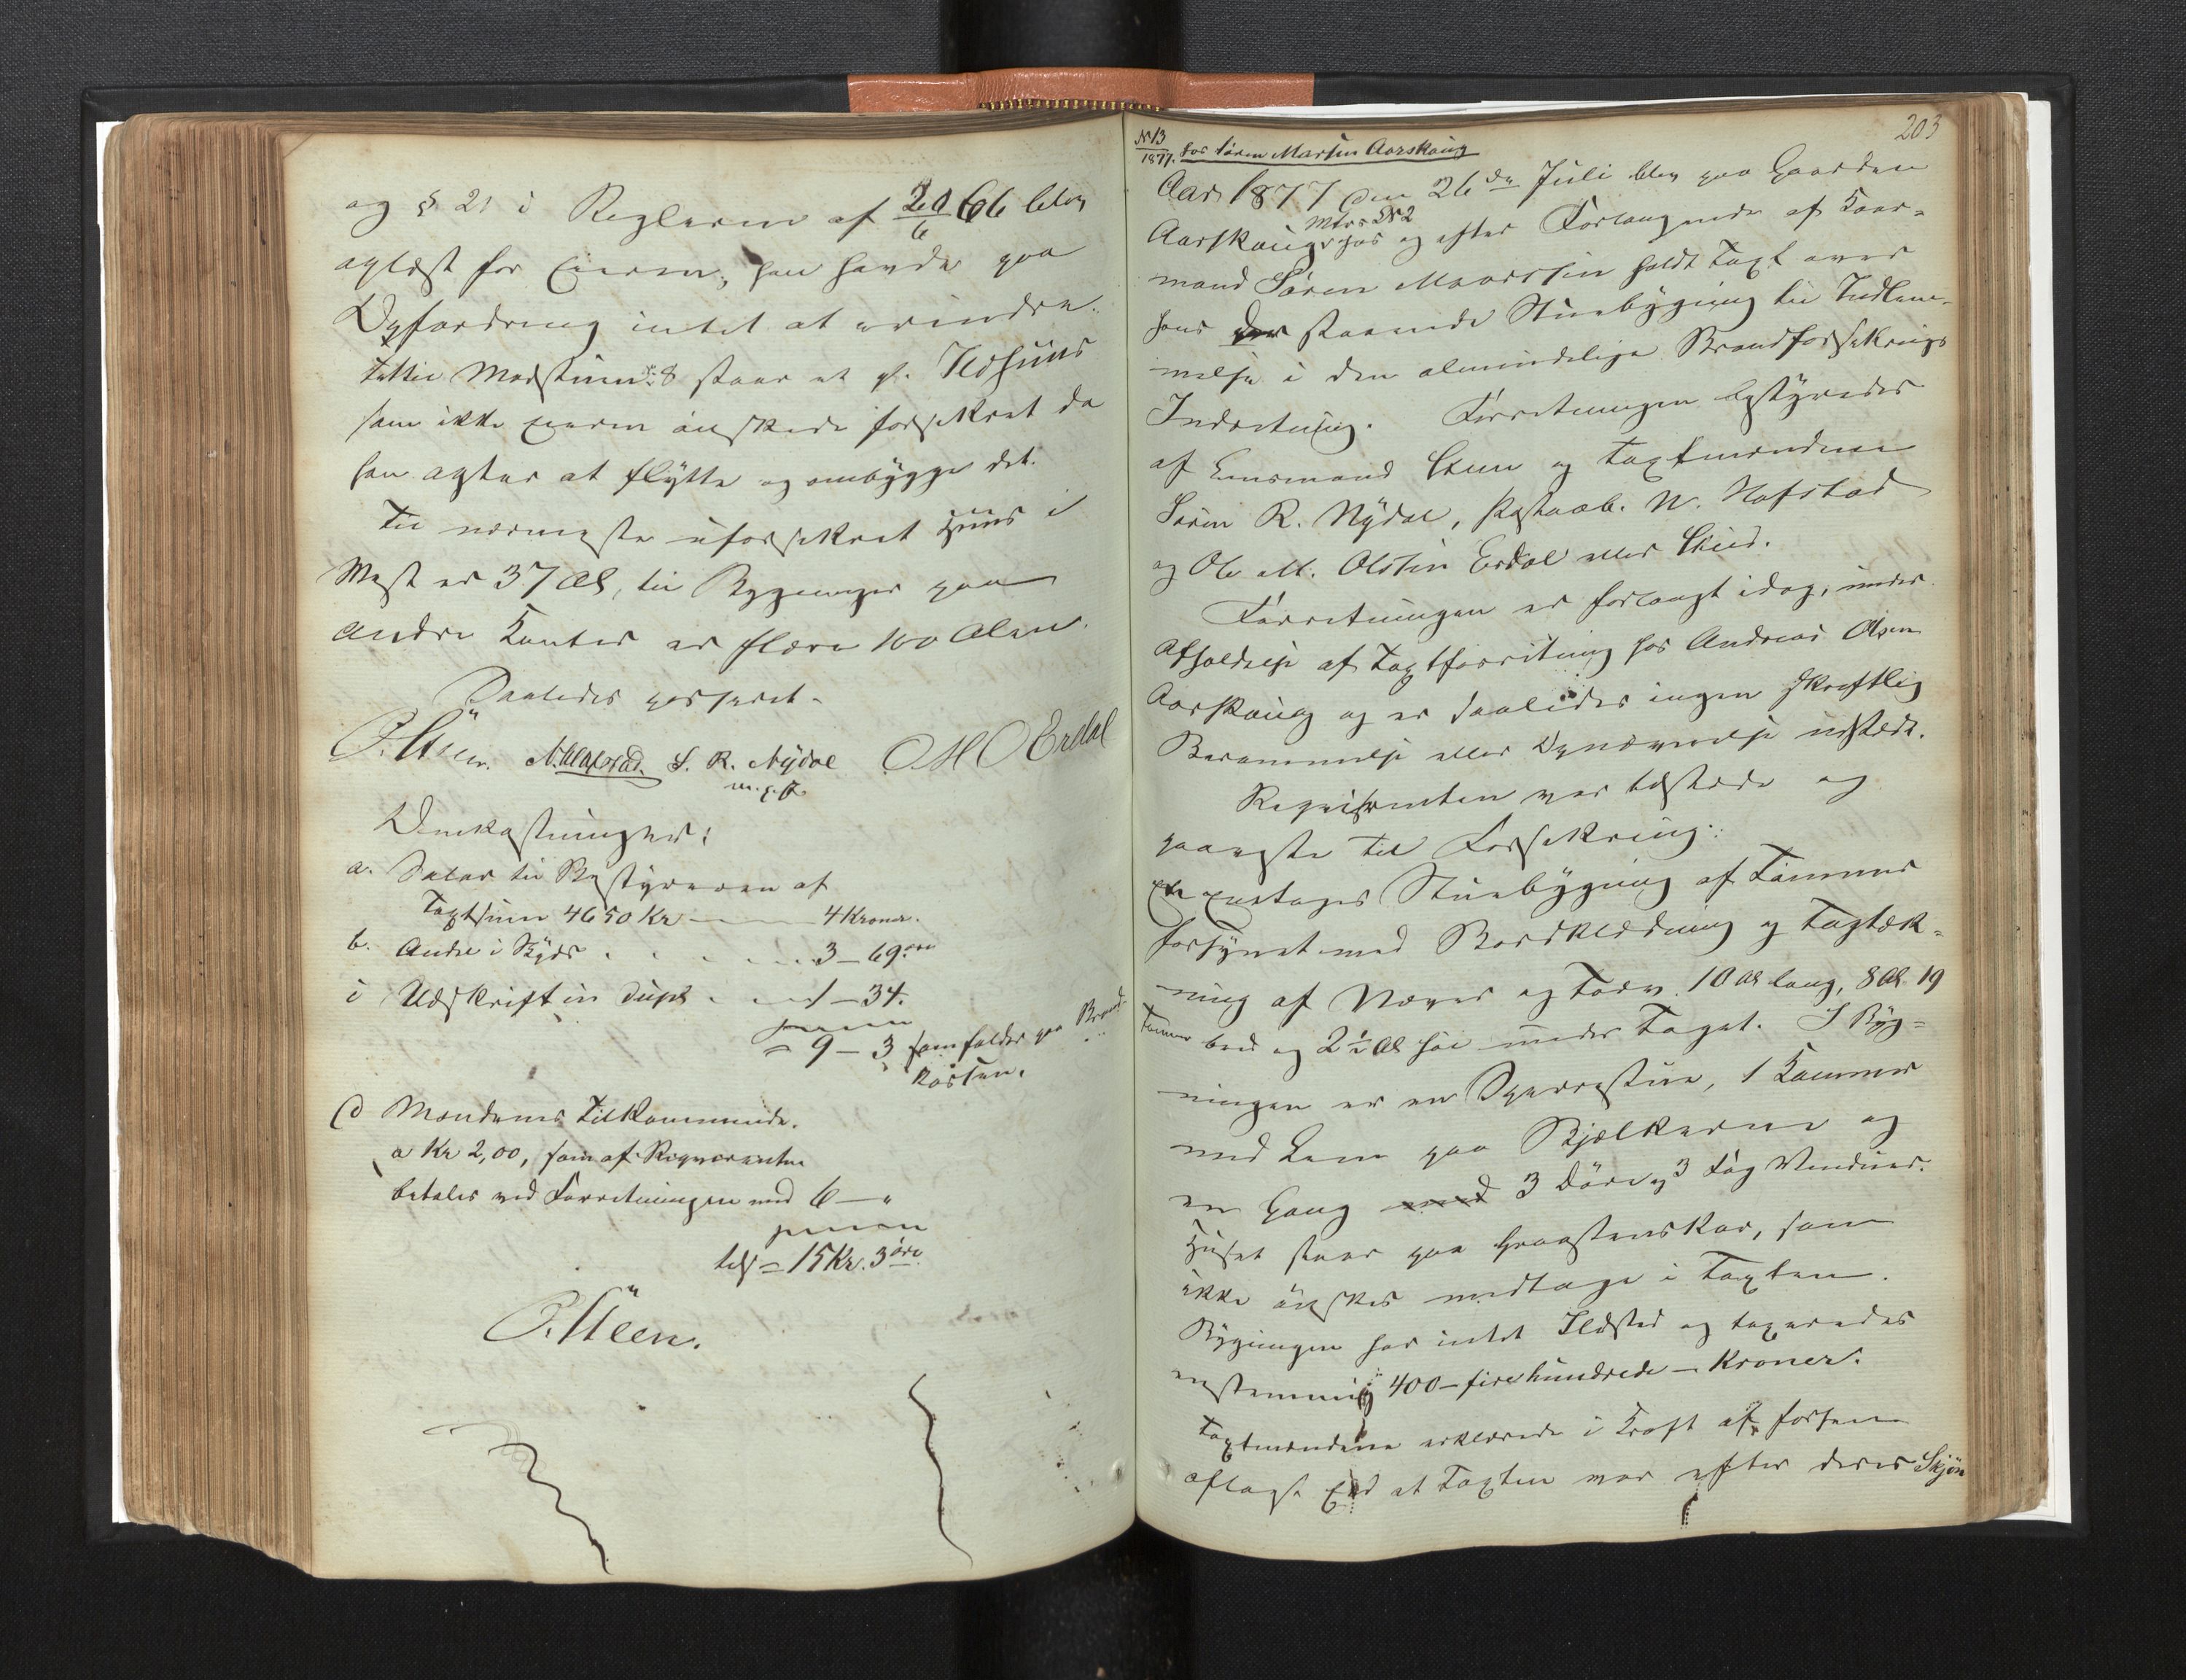 og § 21 i Reglerne af 20/6 66 blev
oplæst for Eieren; han havde paa
Opfordring intet at erindre.
Tætte ved Matrikul No 8 staar et gl. Ildhuus
som ikke Eieren önskede forsikret da
han agter at flÿtte og ombÿgge det.
Til nærmeste uforsikret Huus i
Vest er 37 Al, til Bygninger paa
andre Kanter er flere 100 Alen.
Saaledes passeret.
P. Steen. N. Hafstad. S. R. Nÿdal O M O Erdal
m. p. P.
Omkostninger:
a. Salær til Bestÿreren af
Taxtsum 4650 Kr — 4 Kroner.
b. Andel i Skÿds . . . . . 3 — 69 öre
i Udskrift in dupl . . 1 — 34.
= 9 — 3 som falder paa Brand-
kassen.
d Mændenes Tilkommende.
a Kr 2,00, som af Reqvirenten
betales ved Forretningen med 6 — "
tils = 15 Kr. 3 öre.
P. Steen.
203
No 13
1877. hos Sören Martin Aarskoug
Aar 1877 den 26de Juli blev paa Gaarden
Mtr. No 2
Aarskoug hos og efter Forlangende af Kaar-
mand Sören Maartin holdt Taxt over
hans der staaende Stuebÿgning til Indlem-
melse i den almindelige Brandforsikrings
Indretning. Forretningen bestÿredes
af Lensmand Steen og Taxtmændene
Sören R. Nÿdal, Postaab. N. Hafstad
og Ole M. Olsen Erdal eller Skud.
Forretningen er forlangt idag, under
Afholdelse af Taxtforretning hos Andreas Olsen
Aarskoug og er saaledes ingen skriftlig
Berammelse eller Opnævnelse udstedt.
Reqvirenten var tilstede og
paaviste til Forsikring:
En Enetages Stuebÿgning af Tömmer
forsÿnet med Bordklædning og Tagtæk-
ning af Næver og Torv. 10 Al lang, 8 Al 19
Tommer bred og 2 1/2 Al höi under Taget. I Bÿg-
ningen er en Sperrestue, 1 Kammer
med Lem paa Bjelkerne og
en Gang med 3 Döre og 3 Fag Vinduer.
Huset staar paa Graastensmur, som
ikke önskes medtaget i Taxten.
Bÿgningen har intet Ildsted og taxeredes
enstemmig 400 — firehundrede — Kroner.
Taxtmændene erklærede i Kraft af forhen
aflagt Eed at Taxten var efter deres Skjön